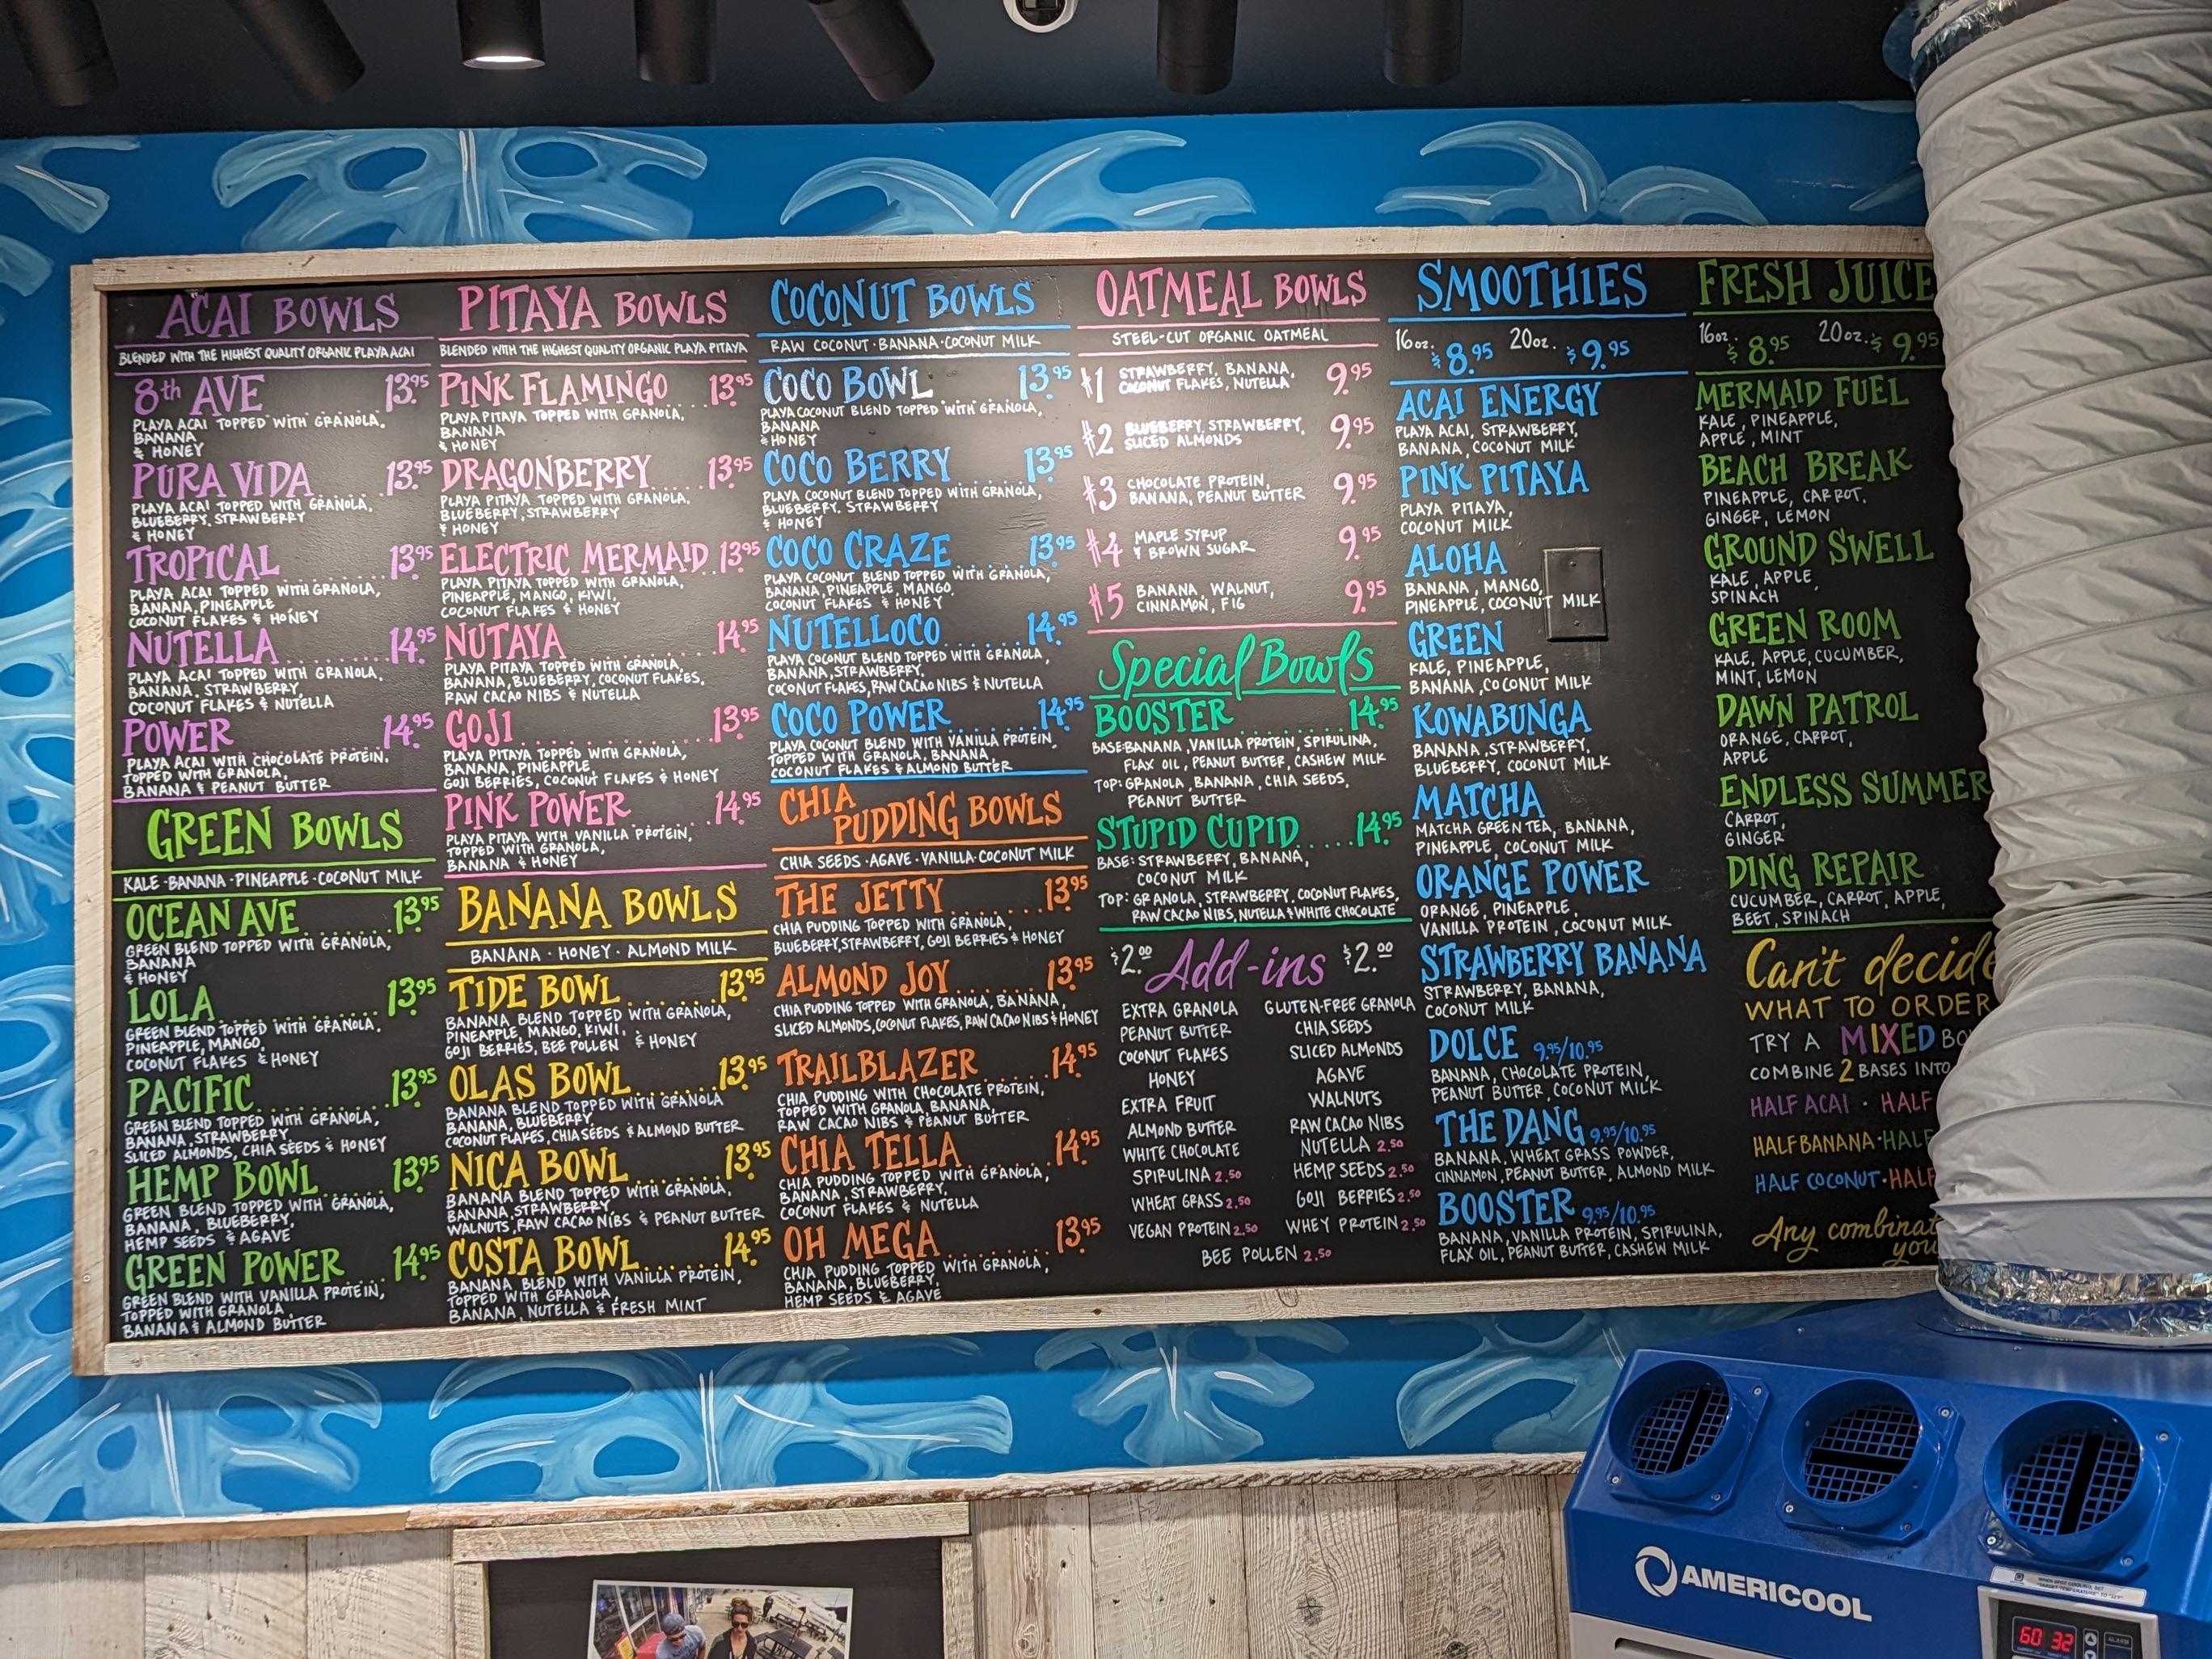 ACAI BOWLS
BLENDED WITH THE HIGHEST QUALITY ORGANIC PLAYA ACAI
8th AVE 13.95
PLAYA ACAI TOPPED WITH GRANOLA,
BANANA
& HONEY
PURA VIDA 13.95
PLAYA ACAI TOPPED WITH GRANOLA,
BLUEBERRY, STRAWBERRY
& HONEY
TROPICAL 13.95
PLAYA ACAI TOPPED WITH GRANOLA,
BANANA, PINEAPPLE
COCONUT FLAKES & HONEY
NUTELLA 14.95
PLAYA ACAI TOPPED WITH GRANOLA,
BANANA, STRAWBERRY
COCONUT FLAKES & NUTELLA
POWER 14.95
PLAYA ACAI WITH CHOCOLATE PROTEIN,
TOPPED WITH GRANOLA,
BANANA & PEANUT BUTTER
GREEN BOWLS
KALE · BANANA · PINEAPPLE · COCONUT MILK
OCEAN AVE 13.95
GREEN BLEND TOPPED WITH GRANOLA,
BANANA
& HONEY
LOLA 13.95
GREEN BLEND TOPPED WITH GRANOLA,
PINEAPPLE, MANGO,
COCONUT FLAKES & HONEY
PACIFIC 13.95
GREEN BLEND TOPPED WITH GRANOLA,
BANANA, STRAWBERRY
SLICED ALMONDS, CHIA SEEDS & HONEY
HEMP BOWL 13.95
GREEN BLEND TOPPED WITH GRANOLA,
BANANA, BLUEBERRY,
HEMP SEEDS & AGAVE
GREEN POWER 14.95
GREEN BLEND WITH VANILLA PROTEIN,
TOPPED WITH GRANOLA,
BANANA & ALMOND BUTTER
PITAYA BOWLS
BLENDED WITH THE HIGHEST QUALITY ORGANIC PLAYA PITAYA
PINK FLAMINGO 13.95
PLAYA PITAYA TOPPED WITH GRANOLA,
BANANA
& HONEY
DRAGONBERRY 13.95
PLAYA PITAYA TOPPED WITH GRANOLA,
BLUEBERRY, STRAWBERRY
& HONEY
ELECTRIC MERMAID 13.95
PLAYA PITAYA TOPPED WITH GRANOLA,
PINEAPPLE, MANGO, KIWI,
COCONUT FLAKES & HONEY
NUTAYA 14.95
PLAYA PITAYA TOPPED WITH GRANOLA,
BANANA, BLUEBERRY, COCONUT FLAKES,
RAW CACAO NIBS & NUTELLA
GOJI 13.95
PLAYA PITAYA TOPPED WITH GRANOLA,
BANANA, PINEAPPLE
GOJI BERRIES, COCONUT FLAKES & HONEY
PINK POWER 14.95
PLAYA PITAYA WITH VANILLA PROTEIN,
TOPPED WITH GRANOLA,
BANANA & HONEY
BANANA BOWLS
BANANA · HONEY · ALMOND MILK
TIDE BOWL 13.95
BANANA BLEND TOPPED WITH GRANOLA,
PINEAPPLE, MANGO, KIWI,
GOJI BERRIES, BEE POLLEN & HONEY
OLAS BOWL 13.95
BANANA BLEND TOPPED WITH GRANOLA
BANANA, BLUEBERRY,
COCONUT FLAKES, CHIA SEEDS & ALMOND BUTTER
NICA BOWL 13.95
BANANA BLEND TOPPED WITH GRANOLA,
BANANA, STRAWBERRY
WALNUTS, RAW CACAO NIBS & PEANUT BUTTER
COSTA BOWL 14.95
BANANA BLEND WITH VANILLA PROTEIN,
TOPPED WITH GRANOLA,
BANANA, NUTELLA & FRESH MINT
COCONUT BOWLS
RAW COCONUT · BANANA · COCONUT MILK
COCO BOWL 13.95
PLAYA COCONUT BLEND TOPPED WITH GRANOLA,
BANANA
& HONEY
COCO BERRY 13.95
PLAYA COCONUT BLEND TOPPED WITH GRANOLA,
BLUEBERRY, STRAWBERRY
& HONEY
COCO CRAZE 13.95
PLAYA COCONUT BLEND TOPPED WITH GRANOLA,
BANANA, PINEAPPLE, MANGO,
COCONUT FLAKES & HONEY
NUTELLOCO 14.95
PLAYA COCONUT BLEND TOPPED WITH GRANOLA,
BANANA, STRAWBERRY,
COCONUT FLAKES, RAW CACAO NIBS & NUTELLA
COCO POWER 14.95
PLAYA COCONUT BLEND WITH VANILLA PROTEIN
TOPPED WITH GRANOLA, BANANA,
COCONUT FLAKES & ALMOND BUTTER
CHIA
PUDDING BOWLS
CHIA SEEDS · AGAVE · VANILLA · COCONUT MILK
THE JETTY 13.95
CHIA PUDDING TOPPED WITH GRANOLA,
BLUEBERRY, STRAWBERRY, GOJI BERRIES & HONEY
ALMOND JOY 13.95
CHIA PUDDING TOPPED WITH GRANOLA, BANANA,
SLICED ALMONDS, COCONUT FLAKES, RAW CACAO NIBS & HONEY
TRAILBLAZER 14.95
CHIA PUDDING WITH CHOCOLATE PROTEIN,
TOPPED WITH GRANOLA, BANANA,
RAW CACAO NIBS & PEANUT BUTTER
CHIA TELLA 14.95
CHIA PUDDING TOPPED WITH GRANOLA,
BANANA, STRAWBERRY,
COCONUT FLAKES & NUTELLA
OH MEGA 13.95
CHIA PUDDING TOPPED WITH GRANOLA,
BANANA, BLUEBERRY,
HEMP SEEDS & AGAVE
OATMEAL BOWLS
STEEL-CUT ORGANIC OATMEAL
#1 STRAWBERRY, BANANA, 9.95
COCONUT FLAKES, NUTELLA
#2 BLUEBERRY, STRAWBERRY, 9.95
SLICED ALMONDS
#3 CHOCOLATE PROTEIN, 9.95
BANANA, PEANUT BUTTER
#4 MAPLE SYRUP 9.95
& BROWN SUGAR
#5 BANANA, WALNUT, 9.95
CINNAMON, FIG
Special Bowls
BOOSTER 14.95
BASE: BANANA, VANILLA PROTEIN, SPIRULINA,
FLAX OIL, PEANUT BUTTER, CASHEW MILK
TOP: GRANOLA, BANANA, CHIA SEEDS,
PEANUT BUTTER
STUPID CUPID 14.95
BASE: STRAWBERRY, BANANA,
COCONUT MILK
TOP: GRANOLA, STRAWBERRY, COCONUT FLAKES,
RAW CACAO NIBS, NUTELLA & WHITE CHOCOLATE
$2.00 Add-ins $2.00
EXTRA GRANOLA GLUTEN-FREE GRANOLA
PEANUT BUTTER CHIA SEEDS
COCONUT FLAKES SLICED ALMONDS
HONEY AGAVE
EXTRA FRUIT WALNUTS
ALMOND BUTTER RAW CACAO NIBS
WHITE CHOCOLATE NUTELLA 2.50
SPIRULINA 2.50 HEMP SEEDS 2.50
WHEAT GRASS 2.50 GOJI BERRIES 2.50
VEGAN PROTEIN 2.50 WHEY PROTEIN 2.50
BEE POLLEN 2.50
SMOOTHIES
16oz. $8.95 20oz. $9.95
ACAI ENERGY
PLAYA ACAI, STRAWBERRY,
BANANA, COCONUT MILK
PINK PITAYA
PLAYA PITAYA,
COCONUT MILK
ALOHA
BANANA, MANGO,
PINEAPPLE, COCONUT MILK
GREEN
KALE, PINEAPPLE,
BANANA, COCONUT MILK
KOWABUNGA
BANANA, STRAWBERRY,
BLUEBERRY, COCONUT MILK
MATCHA
MATCHA GREEN TEA, BANANA,
PINEAPPLE, COCONUT MILK
ORANGE POWER
ORANGE, PINEAPPLE,
VANILLA PROTEIN, COCONUT MILK
STRAWBERRY BANANA
STRAWBERRY, BANANA,
COCONUT MILK
DOLCE 9.95/10.95
BANANA, CHOCOLATE PROTEIN,
PEANUT BUTTER, COCONUT MILK
THE DANG 9.95/10.95
BANANA, WHEAT GRASS POWDER,
CINNAMON, PEANUT BUTTER, ALMOND MILK
BOOSTER 9.95/10.95
BANANA, VANILLA PROTEIN, SPIRULINA,
FLAX OIL, PEANUT BUTTER, CASHEW MILK
FRESH JUICE
16oz. $8.95 20oz. $9.95
MERMAID FUEL
KALE, PINEAPPLE,
APPLE, MINT
BEACH BREAK
PINEAPPLE, CARROT,
GINGER, LEMON
GROUND SWELL
KALE, APPLE,
SPINACH
GREEN ROOM
KALE, APPLE, CUCUMBER,
MINT, LEMON
DAWN PATROL
ORANGE, CARROT,
APPLE
ENDLESS SUMMER
CARROT,
GINGER
DING REPAIR
CUCUMBER, CARROT, APPLE,
BEET, SPINACH
Can't decide
WHAT TO ORDER
TRY A MIXED BO
COMBINE 2 BASES INTO
HALF ACAI · HALF
HALF BANANA · HALF
HALF COCONUT · HALF
Any combinat
you
AMERICOOL
60 32